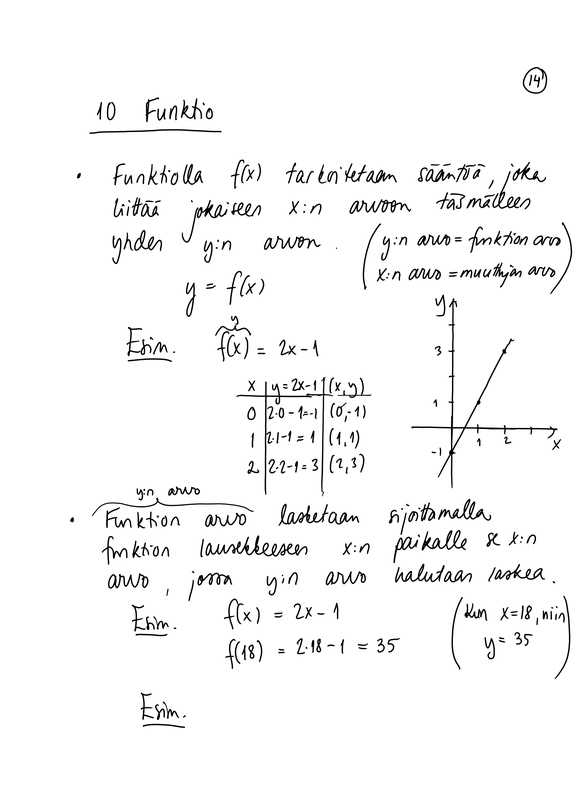 14
10 Funktio
• Funktiolla f(x) tarkoitetaan sääntöä, joka
liittää jokaiseen x:n arvoon täsmälleen
yhden y:n arvon. (y:n arvo = funktion arvo
x:n arvo = muuttujan arvo)
y = f(x)
y
Esim. f(x) = 2x-1
x | y=2x-1 | (x,y)
0 | 2·0-1=-1 | (0,-1)
1 | 2·1-1=1 | (1,1)
2 | 2·2-1=3 | (2,3)
y
3
1
-1
1 2 x
y:n arvo
• Funktion arvo lasketaan sijoittamalla
funktion lausekkeeseen x:n paikalle se x:n
arvo, jossa y:n arvo halutaan laskea.
Esim. f(x) = 2x-1
f(18) = 2·18-1 = 35
(kun x=18, niin
y = 35)
Esim.